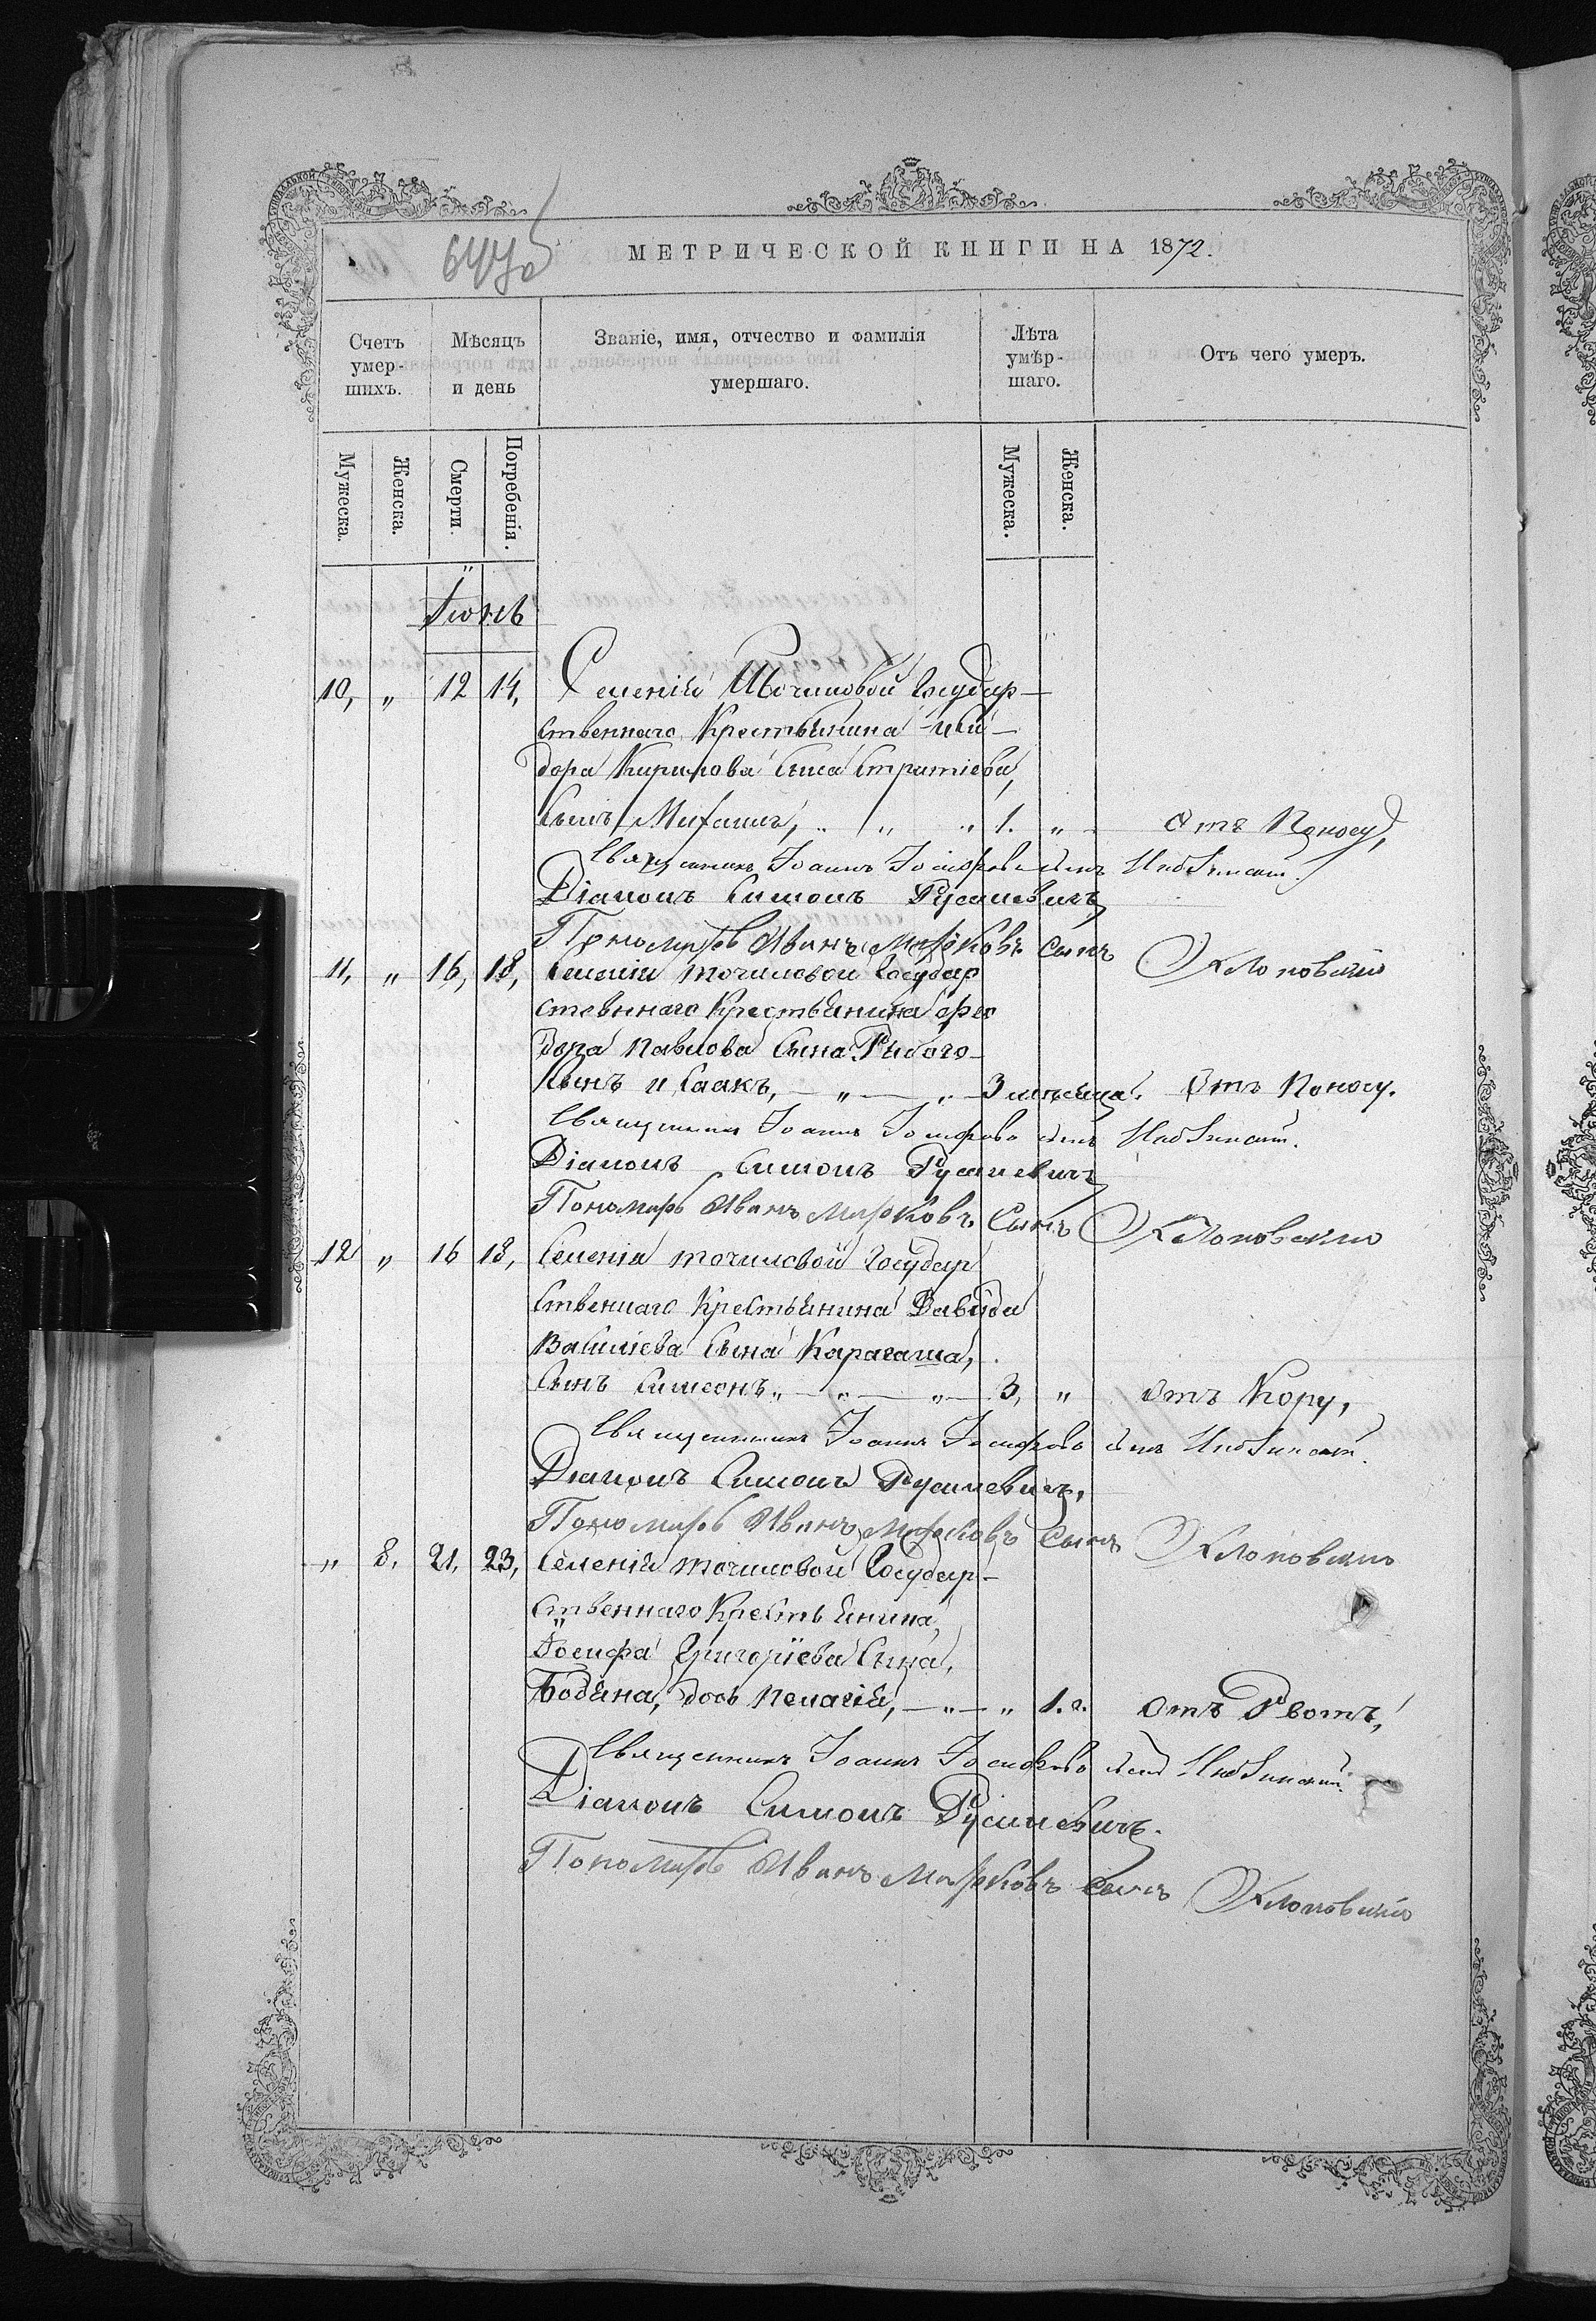 МЕТРИЧЕСКОЙ КНИГИ НА 1872.
Счетъ умер-шихъ.
Мѣсяцъ и день
Званіе, имя, отчество и фамилія умершаго.
Лѣта умѣр-шаго.
Отъ чего умеръ.
Мужеска. Женска. Смерти. Погребенія. Мужеска. Женска.
Іюнь
10, „ 12 14, Селенія Точиловой Государ-
ственнаго Крестьянина
дора Кирилова Сына
Сынъ „ „ 1. „ Отъ Поносу,
Священникъ Іоаннъ Іосифовъ сынъ
Діаконъ Симонъ
Пономарь Иванъ Марковъ Сынъ Клоповскій
11, „ 16, 18, Селенія Точиловой Государ
ственнаго Крестьянина Фео
дора Павлова Сына Рибого
Сынъ Исаакъ, — „ — „ — 3 месяца. Отъ Поносу.
Священникъ Іоаннъ Іосифовъ сынъ
Діаконъ Симонъ
Пономарь Иванъ Марковъ Сынъ Клоповскій
12 „ 16 18, Селенія Точиловой Государ
ственнаго Крестьянина Давида
Василіева Сына Карагаша,
Сынъ Симеонъ „ — „ — „ — 3, „ Отъ Кору,
Священникъ Іоаннъ Іосифовъ сынъ
Діаконъ Симонъ
Пономарь Иванъ Марковъ Сынъ Клоповскій
„ 8. 21. 23, Селенія Точиловой Государ-
ственнаго Крестьянина,
Іосифа Григоріева Сына,
Бодяна, дочь Пелагія, — „ — „ 1. г. Отъ Рвотъ,
Священникъ Іоаннъ Іосифовъ сынъ
Діаконъ Симонъ
Пономарь Иванъ Марковъ Сынъ Клоповскій